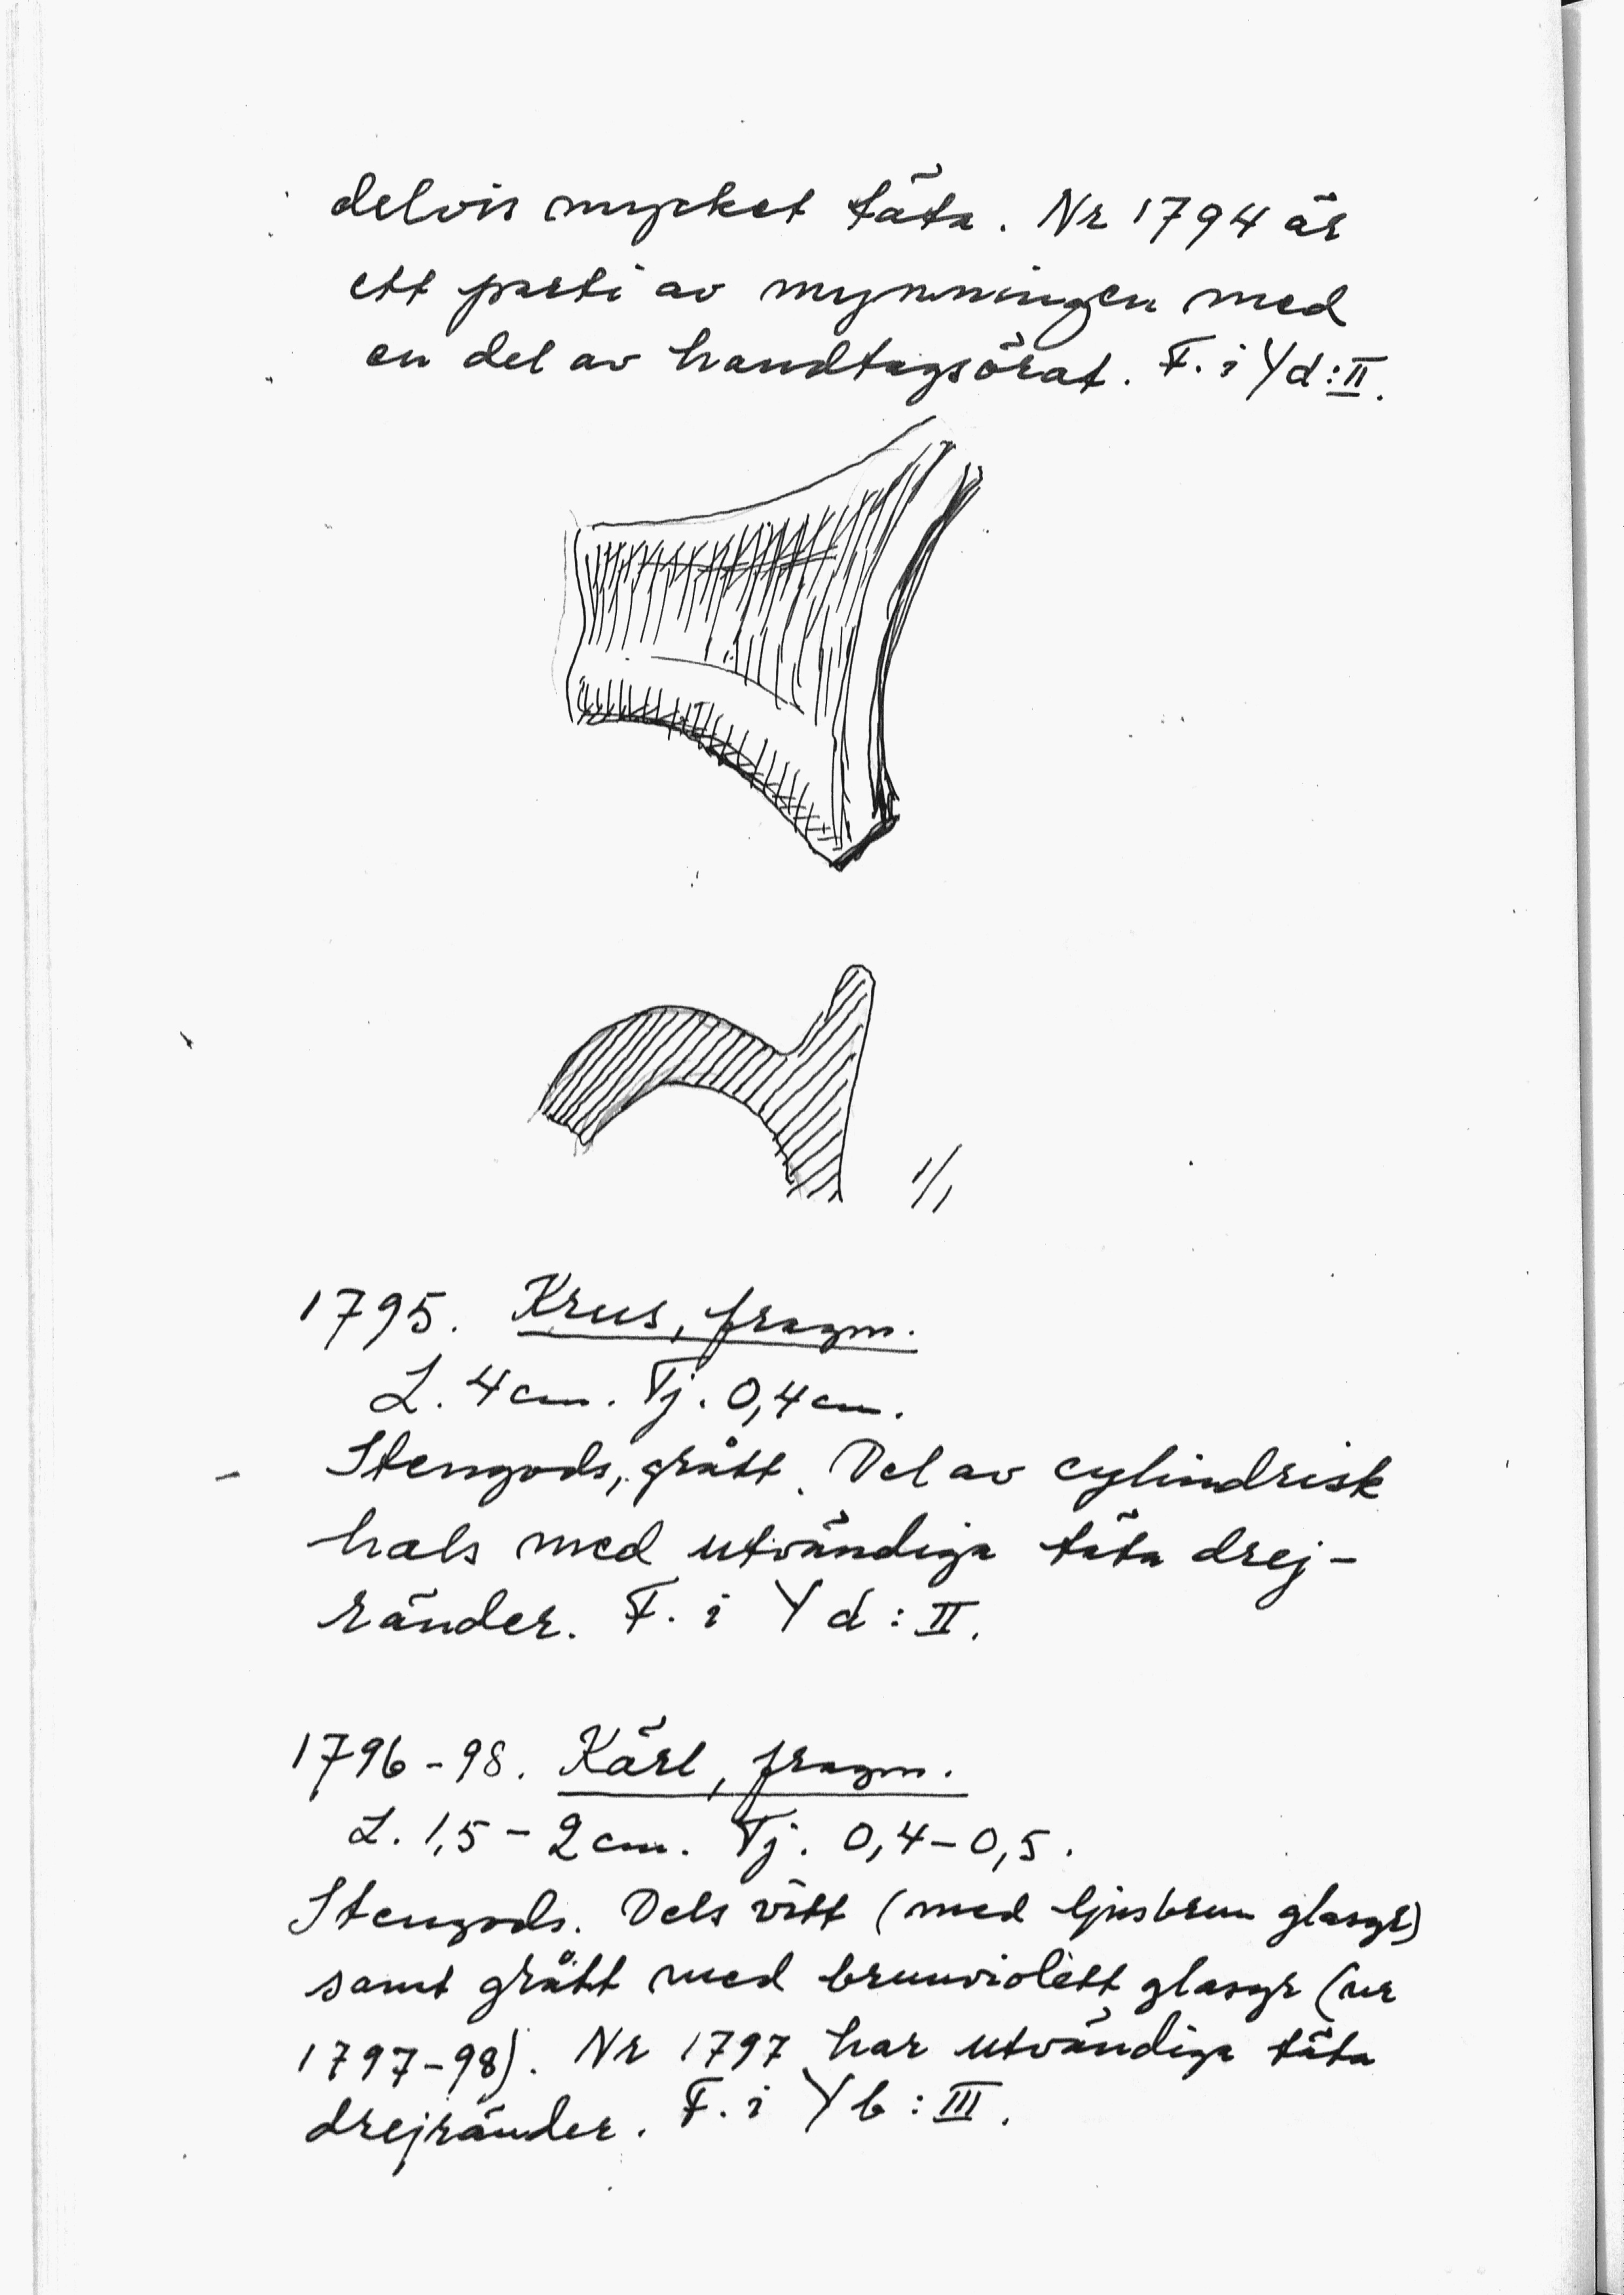 delvis mycket täta. Nr 1794 är
ett parti av mynningen med
en del av handtagsörat. F. i Yd:II.
1/1
1795. Krus, fragm.
L. 4 cm. Tj. 0,4 cm.
Stengods, grått. Del av cylindrisk
hals med utvändiga täta drej-
ränder. F. i Yd:II.
1796-98. Kärl, fragm.
L. 1,5-2 cm. Tj. 0,4-0,5.
Stengods. Dels vitt (med ljusbrun glasyr)
samt grått med brunviolett glasyr (nr
1797-98). Nr 1797 har utvändiga täta
drejränder. F. i Yb:III.